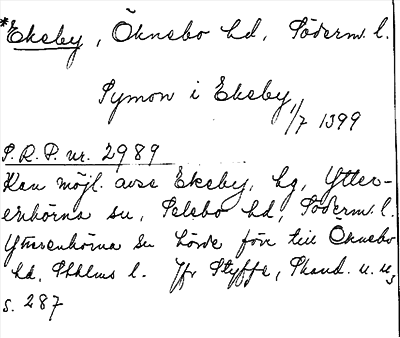 *Eksby, Öknebo hd, Söderm. l.
Symon i Eksby 1/7 1399
S. R. P. nr. 2989
Kan möjl. avse Eksby, hg, Ytter-
enhörna sn, Selebo hd, Söderm. l.
Ytterenhörna sn hörde förr till Öknebo
hd, Sthlms l. Jfr Styffe, Skand. u. u.3
s. 287